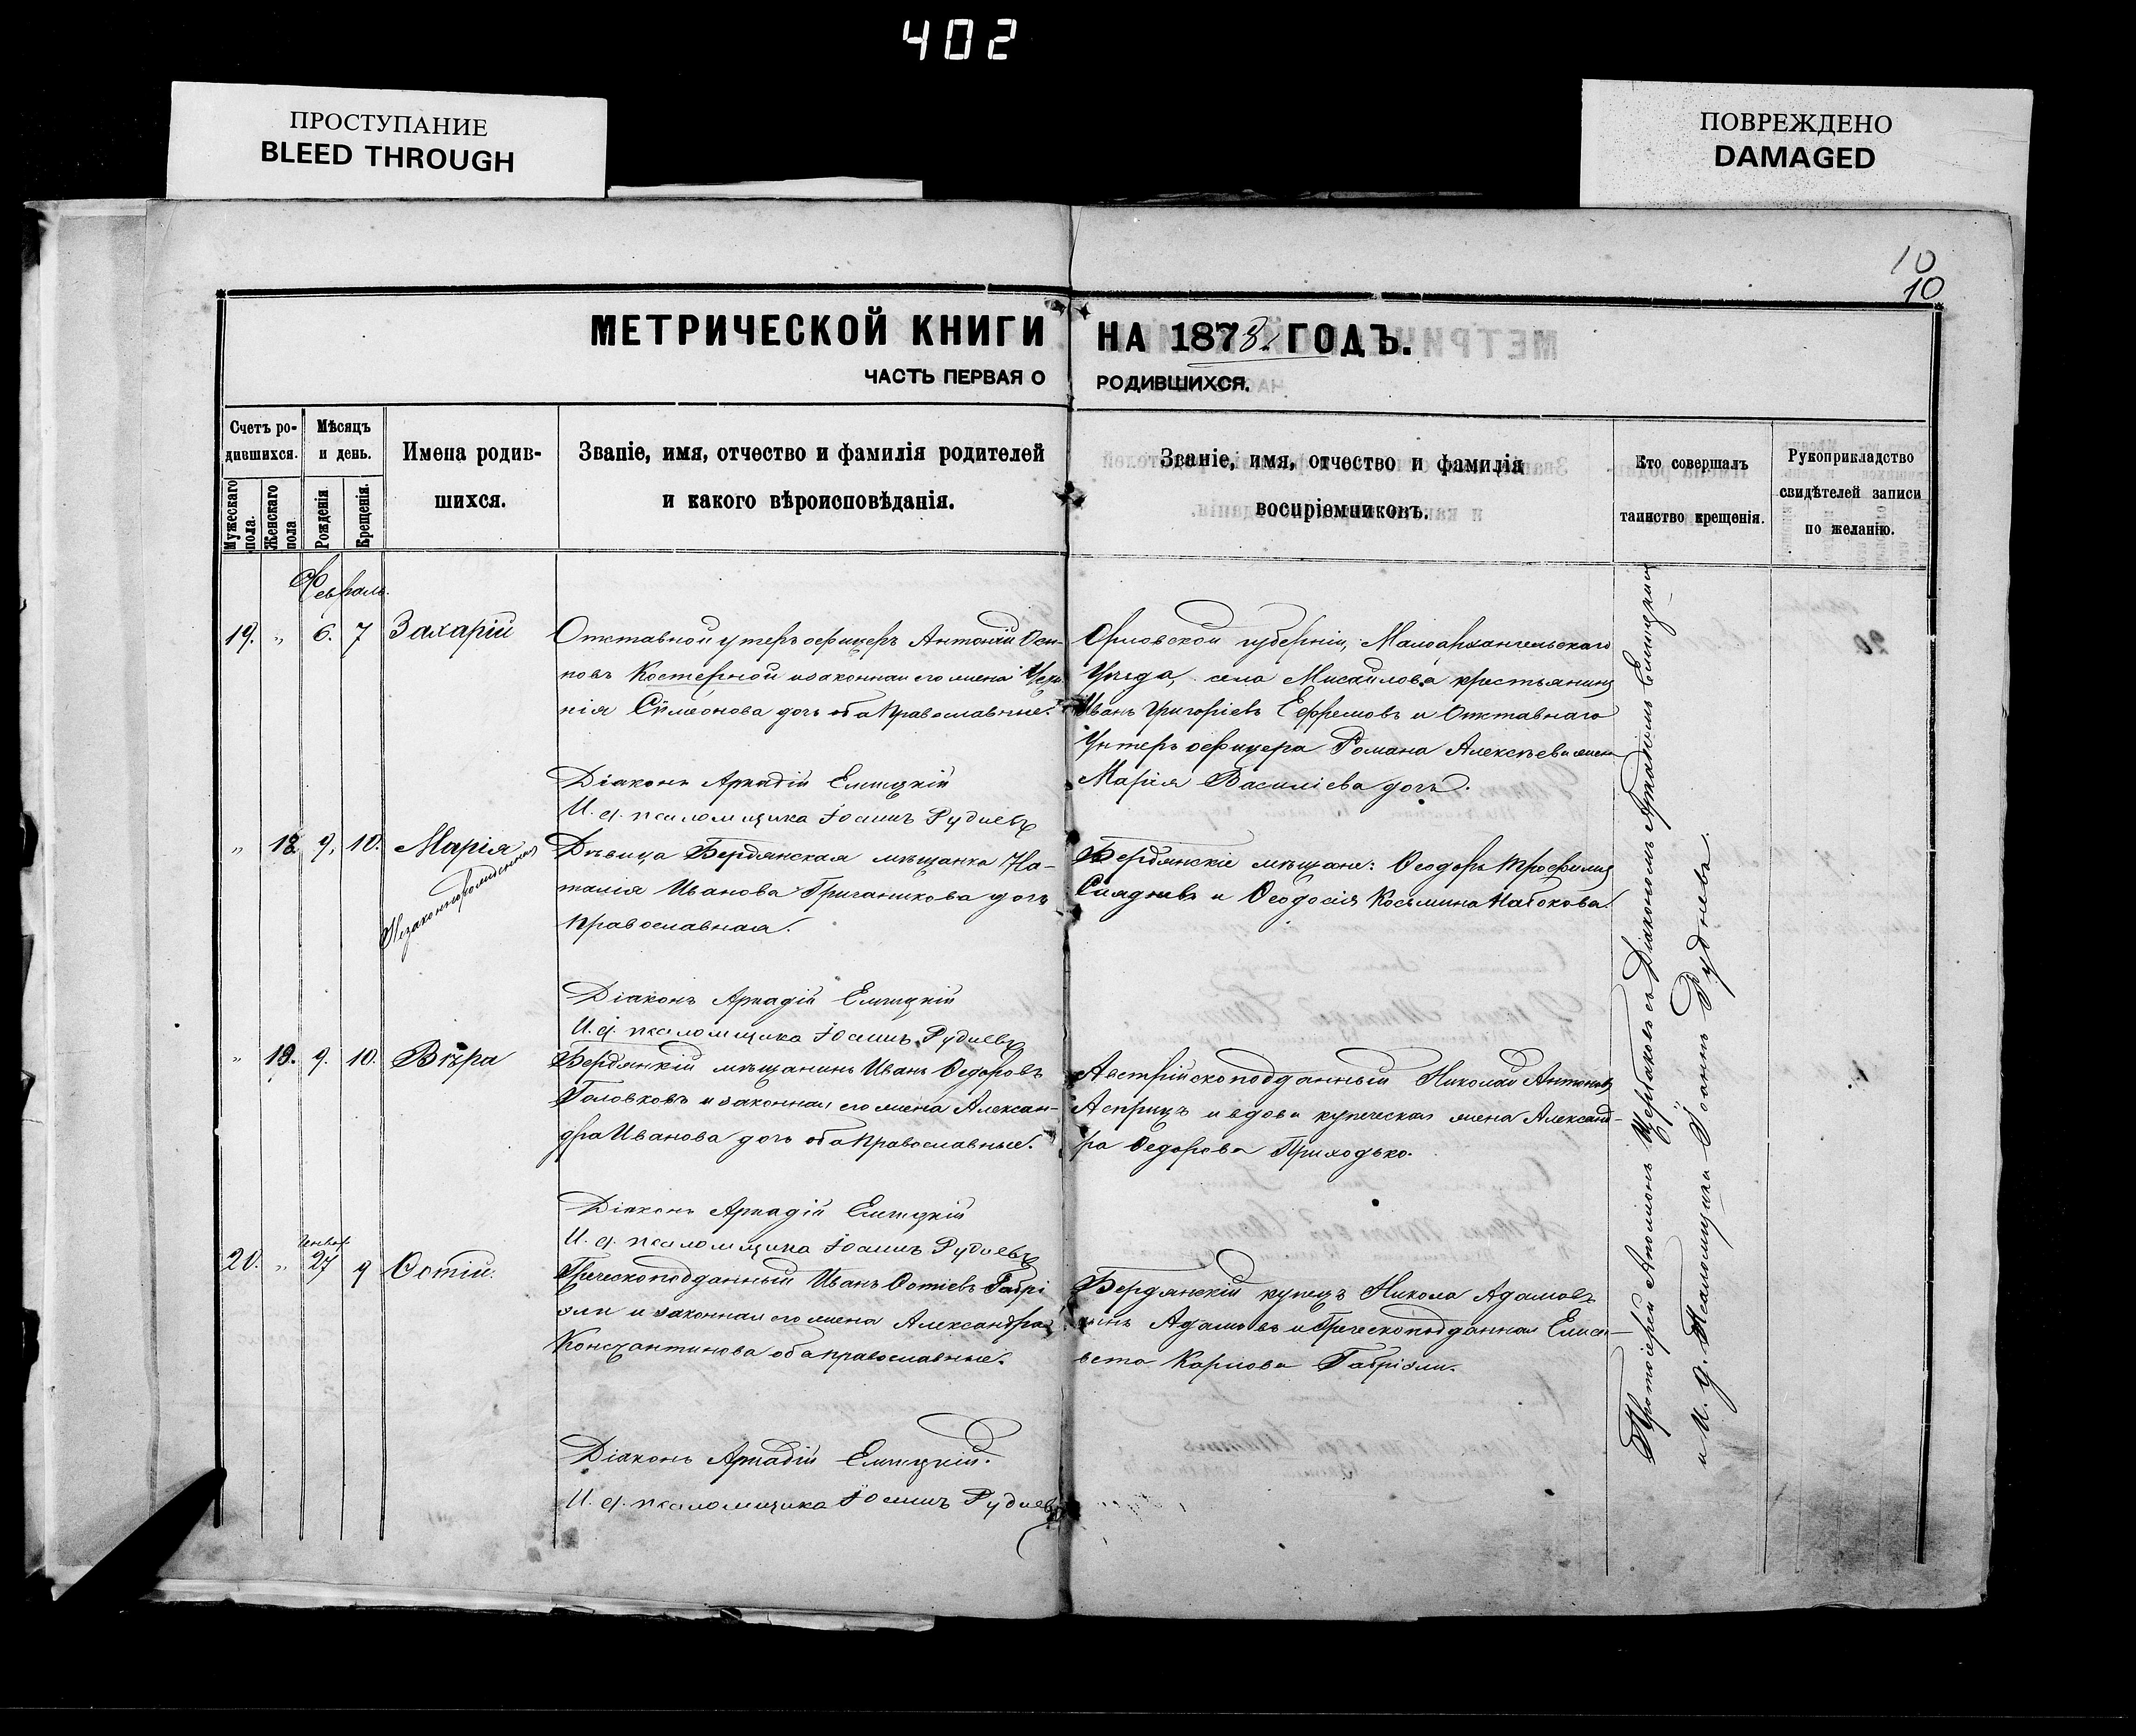 402
ПРОСТУПАНИЕ
BLEED THROUGH
ПОВРЕЖДЕНО
DAMAGED
10
10
МЕТРИЧЕСКОЙ КНИГИ НА 1873 ГОДЪ.
ЧАСТЬ ПЕРВАЯ О РОДИВШИХСЯ.
Счетъ ро-
дившихся.
Мужескаго
пола.
Женскаго
пола
Мѣсяцъ
и день.
Рожденія
Крещенія.
Имена родив-
шихся.
Званіе, имя, отчество и фамилія родителей
и какого вѣроисповѣданія.
Званіе, имя, отчество и фамилія
воспріемниковъ.
Кто совершалъ
таинство крещенія.
Рукоприкладство
свидѣтелей записи
по желанію.
Февраль.
19. „ 6. 7 Захарій
Отставной унтеръ офицеръ Антоній Оси-
повъ Костерной и законная его жена
нія Сѵмеонова дочь оба Православные.
Діаконъ Аркадій Елицкій
И. д. псаломщика Іоаннъ Рудневъ
Орловской губерніи, Малоархангельскаго
Уѣзда, села Мисайлова крестьянинъ
Иванъ Григоріевъ Ефремовъ и Отставнаго
Унтеръ офицера Романа Алексѣева жена
Марія Василіева дочь.
„ 18. 9. 10. Марія
Незаконнорожденная
Дѣвица Бердянская мѣщанка На-
талія Иванова Гричаникова дочь
православная.
Діаконъ Аркадій Елицкій
И. д. псаломщика Іоаннъ Рудневъ
Бердянскіе мѣщане: Ѳеодоръ Трофимъ
и Ѳеодосія Косьмина Набокова.
„ 19. 9. 10. Вѣра
Бердянскій мѣщанинъ Иванъ Ѳедоровъ
Головковъ и законная его жена Алексан-
дра Иванова дочь оба Православные.
Діаконъ Аркадій Елицкій
И. д. псаломщика Іоаннъ Рудневъ
Австрійскоподданный Николай Антоновъ
Асприцъ и вдова купеческая жена Александ-
ра Ѳедорова Приходько.
Январ.
20. „ 27 9 Ѳотій.
Греческоподданный Иванъ Ѳотіевъ Габрі
эли и законная его жена Александра
Константинова оба православные.
Діаконъ Аркадій Елицкій.
И. д. псаломщика Іоаннъ Рудневъ
Бердянскій купецъ Никола Адамовъ
Адамовъ и Греческоподданная Елиса-
вета Карлова Габріэли.
Протоіерей Аполлонъ Щербаковъ съ Діакономъ Аркадіемъ Елицкимъ
и И. д. Псаломщика Іоаннъ Руднева.